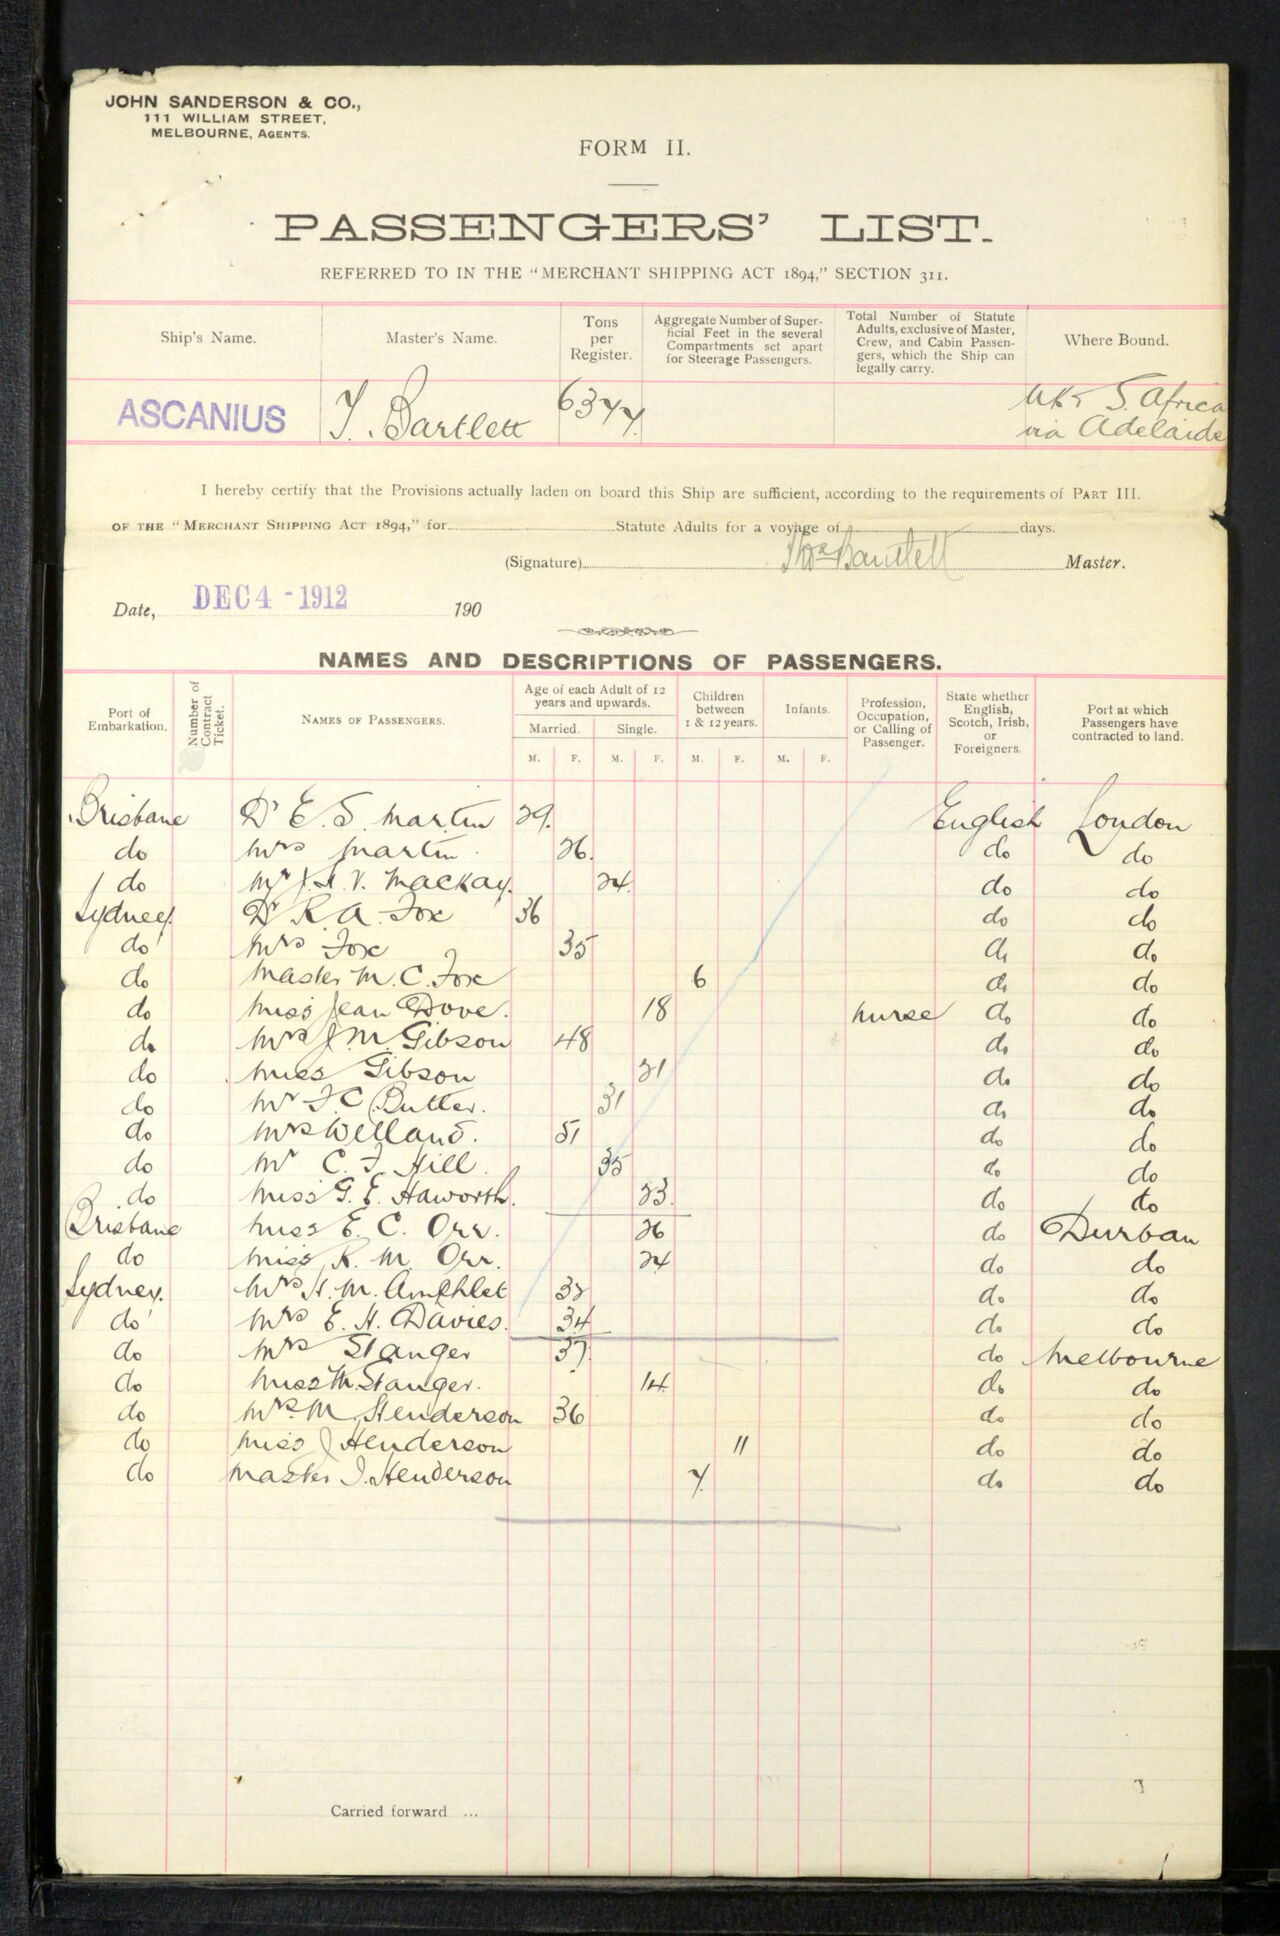 JOHN SANDERSON & CO.,
111 WILLIAM STREET,
MELBOURNE, AGENTS.
FORM II.
PASSENGERS' LIST.
REFERRED TO IN THE "MERCHANT SHIPPING ACT 1894," SECTION 311.
Ship's Name. Master's Name. Tons per Register. Aggregate Number of Superficial Feet in the several Compartments set apart for Steerage Passengers. Total Number of Statute Adults, exclusive of Master, Crew, and Cabin Passengers, which the Ship can legally carry. Where Bound.
ASCANIUS T. Bartlett 6344. UK & S. Africa
via Adelaide
I hereby certify that the Provisions actually laden on board this Ship are sufficient, according to the requirements of PART III.
OF THE "MERCHANT SHIPPING ACT 1894," for Statute Adults for a voyage of days.
(Signature) Thos Bartlett Master.
Date, DEC 4 - 1912 190
NAMES AND DESCRIPTIONS OF PASSENGERS.
Port of Embarkation. Number of Contract Ticket. NAMES OF PASSENGERS. Age of each Adult of 12 years and upwards. Children between 1 & 12 years. Infants. Profession, Occupation, or Calling of Passenger. State whether English, Scotch, Irish, or Foreigners. Port at which Passengers have contracted to land.
Married. Single.
M. F. M. F. M. F. M. F.
Brisbane Dr E. S. Martin 29. English London
do Mrs Martin 26. do do
do Mr J. V. Mackay. 24. do do
Sydney. Dr R. A. Fox 36 do do
do Mrs Fox 35 do do
do Master M. C. Fox 6 do do
do Miss Jean Dove. 18 nurse do do
do Mrs J. M. Gibson 48 do do
do Miss Gibson 21 do do
do Mr F. C. Butter. 31 do do
do Mrs Welland. 51 do do
do Mr C. F. Hill. 35 do do
do Miss G. E. Haworth. 23. do do
Brisbane Miss E. C. Orr. 26 do Durban
do Miss R. M. Orr. 24 do do
Sydney. Mrs H. M. Amphlet do do
do Mrs E. H. Davies. 34 do do
do Mrs Stanger 37. do Melbourne
do Miss M. Stanger. 14. do do
do Mrs. M. Henderson 36 do do
do Miss J Henderson 11 do do
do Master I. Henderson 7. do do
Carried forward ...